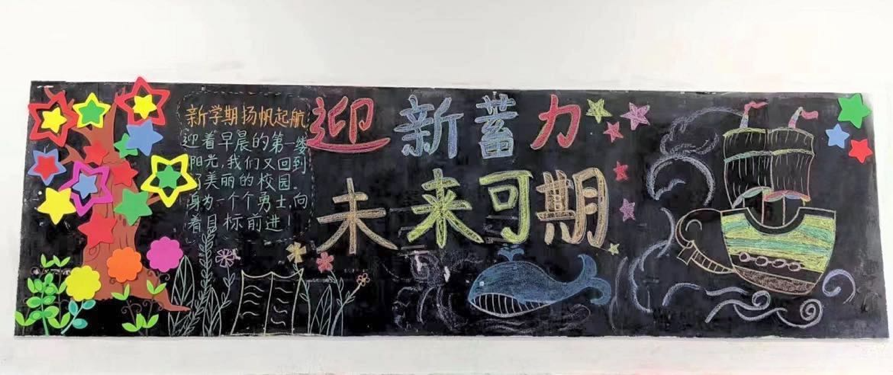 新学期扬帆起航
迎着早晨的第一缕
阳光,我们又回到
了美丽的校园.
身为一个个勇士,向
着目标前进!
迎新蓄力
未来可期